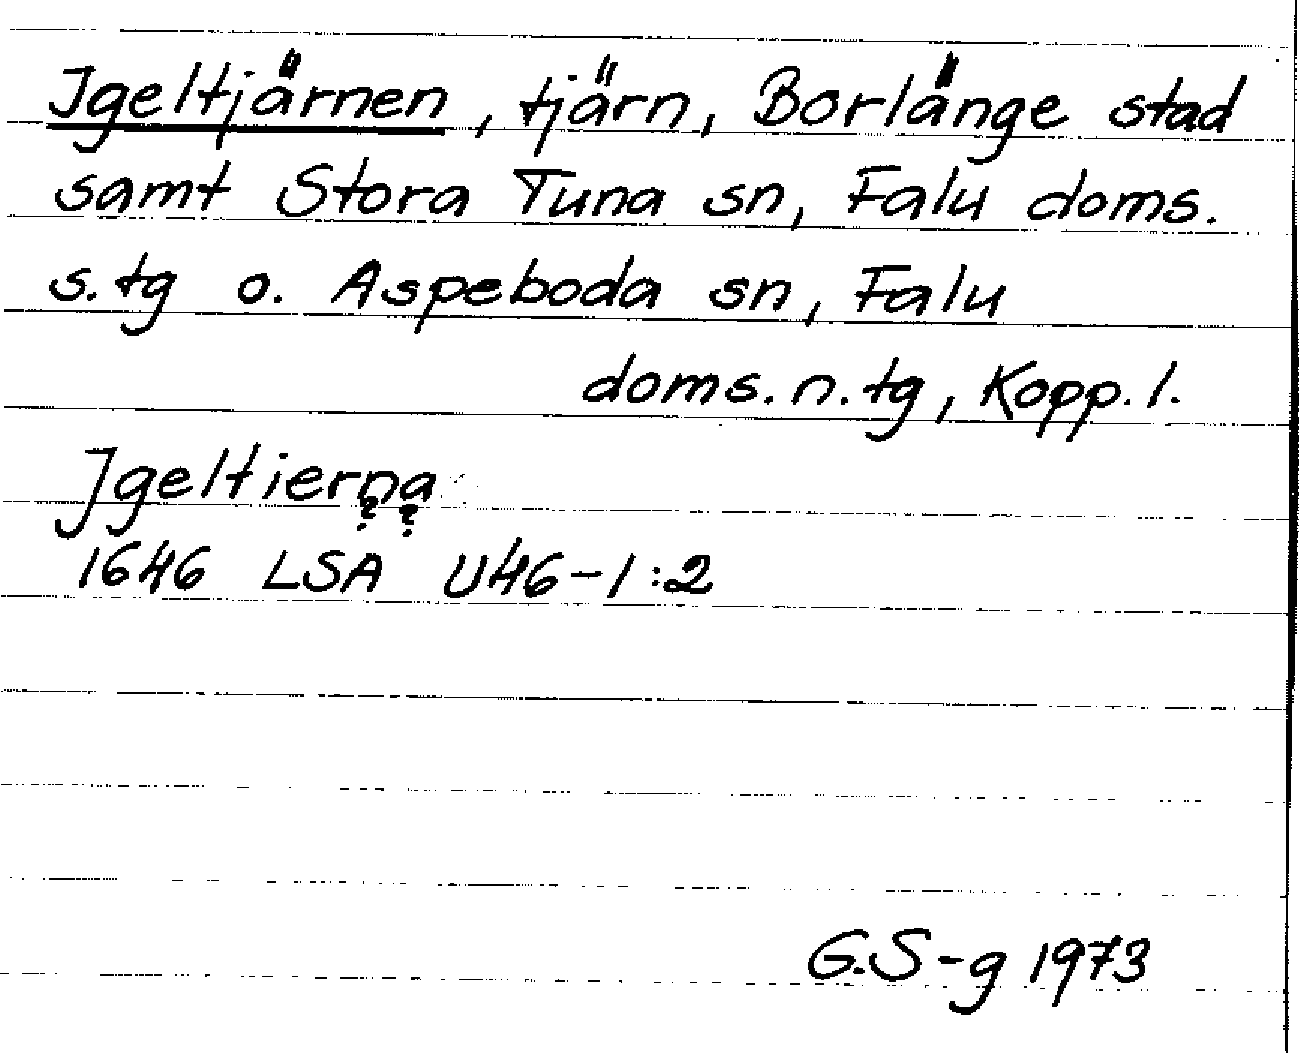 Igeltjärnen, tjärn, Borlänge stad
samt Stora Tuna sn, Falu doms.
s. tg o. Aspeboda sn, Falu
doms. n. tg, Kopp. l.
Igeltierna
? ?
1646 LSA U46-1:2
G.S-g 1973